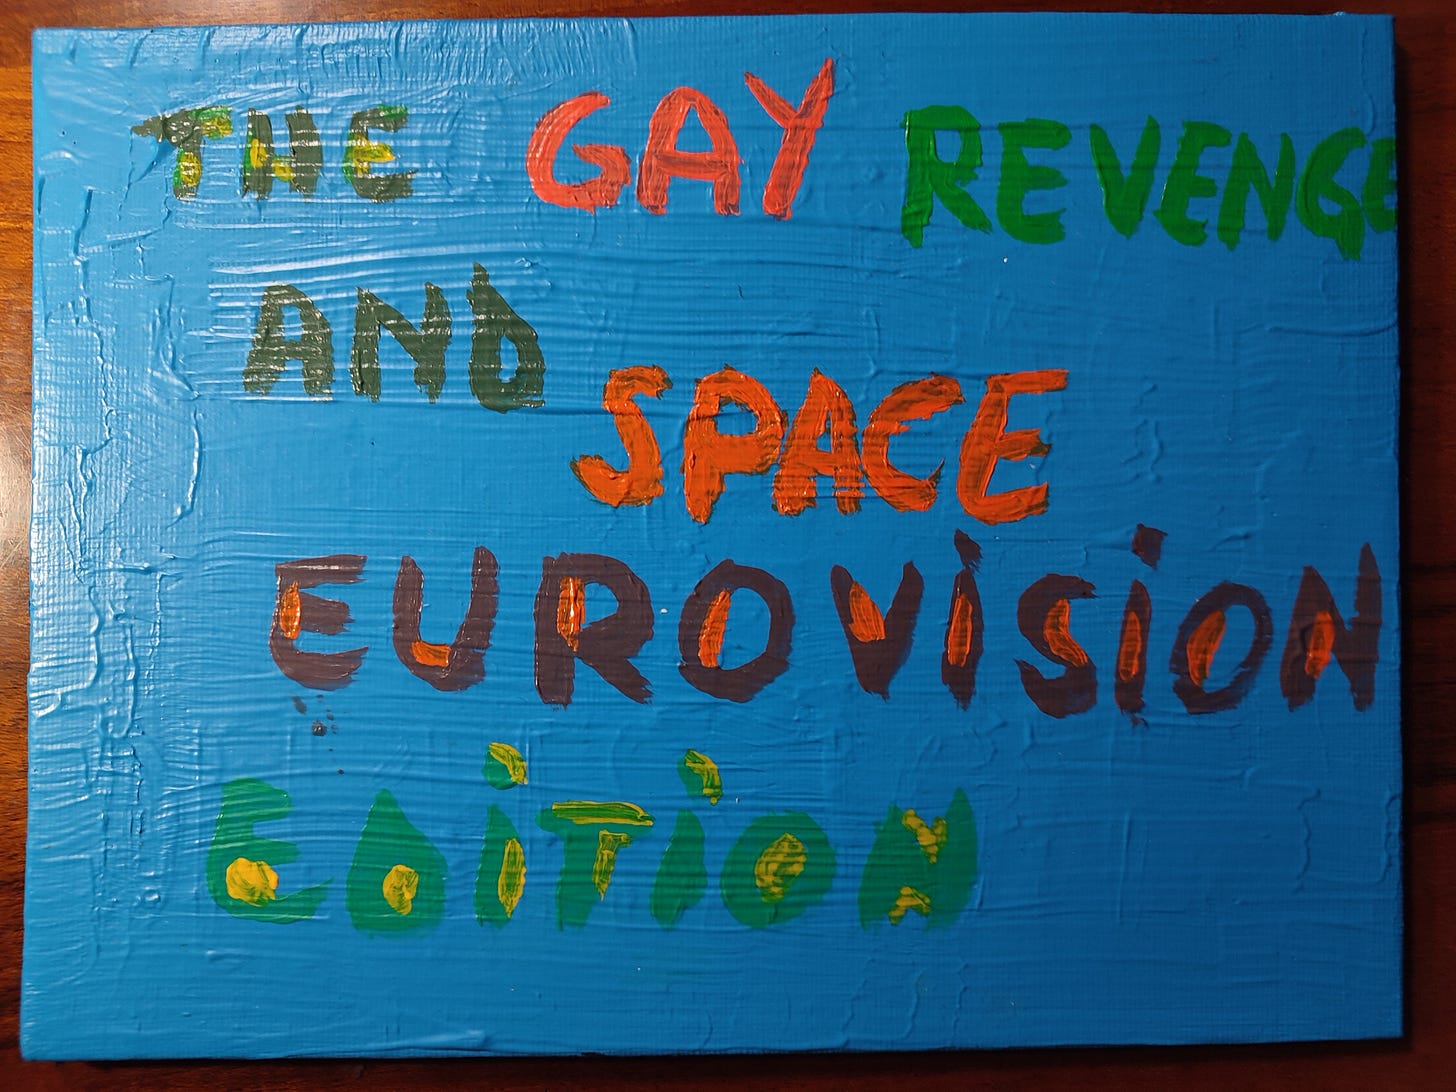 THE GAY REVENGE
AND
SPACE
EUROViSiON
EDiTiON